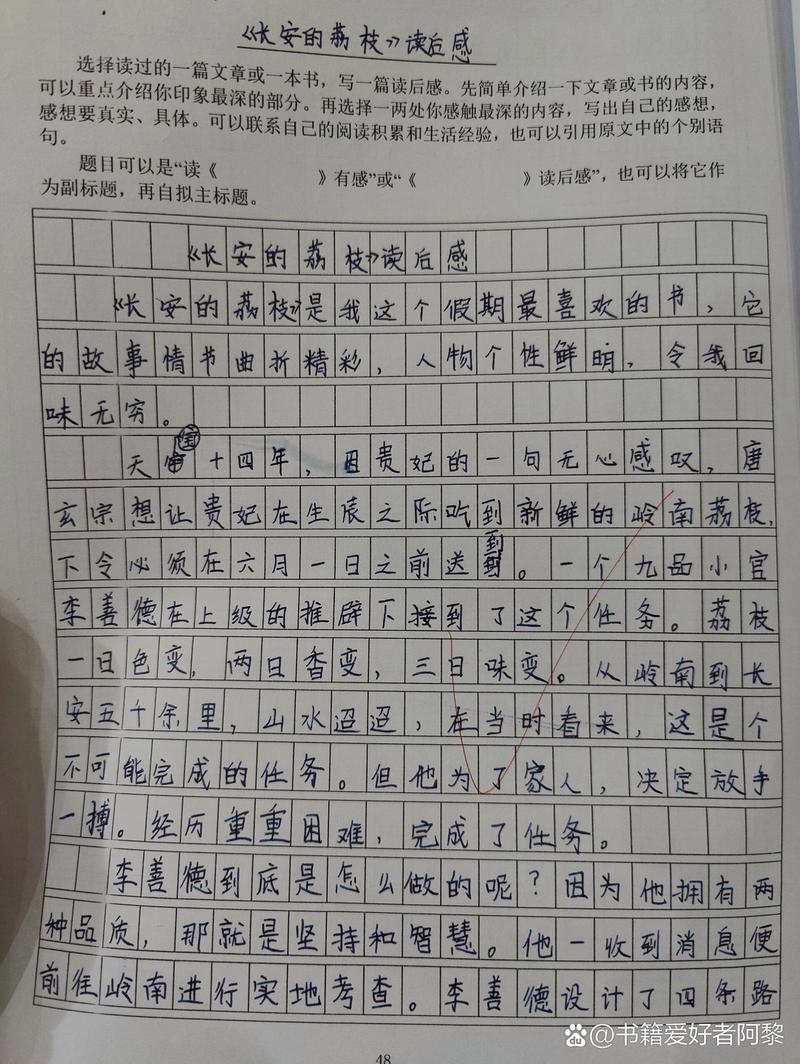 《长安的荔枝》读后感
选择读过的一篇文章或一本书，写一篇读后感。先简单介绍一下文章或书的内容，
可以重点介绍你印象最深的部分。再选择一两处你感触最深的内容，写出自己的感想，
感想要真实、具体。可以联系自己的阅读积累和生活经验，也可以引用原文中的个别语
句。
题目可以是“读《 》有感”或“《 》读后感”，也可以将它作
为副标题，再自拟主标题。
《长安的荔枝》读后感
《长安的荔枝》是我这个假期最喜欢的书，它
的故事情节曲折精彩，人物个性鲜明，令我回
味无穷。
天宝十四年，因贵妃的一句无心感叹，唐
玄宗想让贵妃在生辰之际吃到新鲜的岭南荔枝，
下令必须在六月一日之前送到。一个九品小官
李善德在上级的推辟下接到了这个任务。荔枝
一日色变，两日香变，三日味变。从岭南到长
安五千余里，山水迢迢，在当时看来，这是个
不可能完成的任务。但他为了家人，决定放手
一搏。经历重重困难，完成了任务。
李善德到底是怎么做的呢？因为他拥有两
种品质，那就是坚持和智慧。他一收到消息便
前往岭南进行实地考查。李善德设计了四条路
48
du @书籍爱好者阿黎